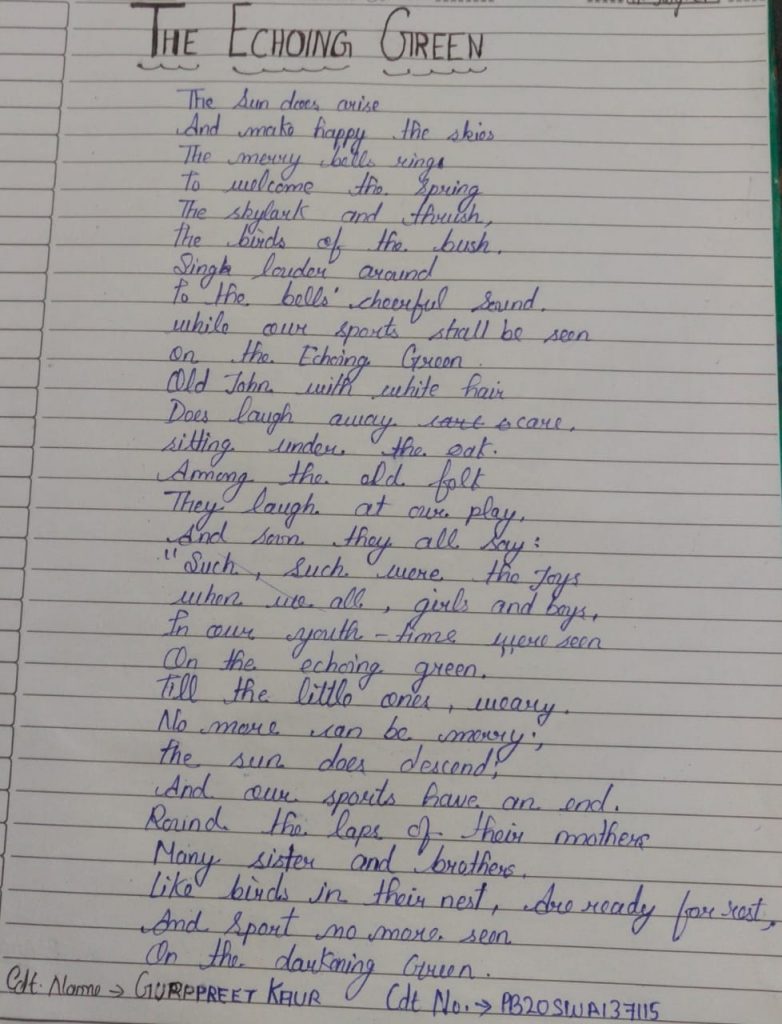 THE ECHOING GREEN
The Sun does arise
And make happy the skies
The merry bells rings
To welcome the Spring
The skylark and thrush,
the birds of the bush.
Singh louder around
To the bells' cheerful Sound.
while our sports shall be seen
on the Echoing Green.
Old John with white hair
Does laugh away care,
sitting under the oak.
Among the old folk
They laugh at our play,
And soon they all say:
"Such, such were the Joys
when we all, girls and boys,
In our youth-time were seen
On the echoing green.
Till the little ones, weary.
No more can be merry;
the sun does descend,
And our sports have an end.
Round the laps of their mothers
Many sister and brothers.
Like birds in their nest, Are ready for rest,
And Sport no more seen
On the darkning Green.
Cdt. Name → GURPPREET KAUR Cdt No. → PB20SWA137115